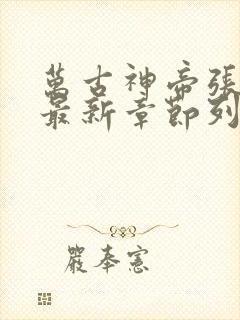 萬古神帝張
最新章節列
嚴奉憲